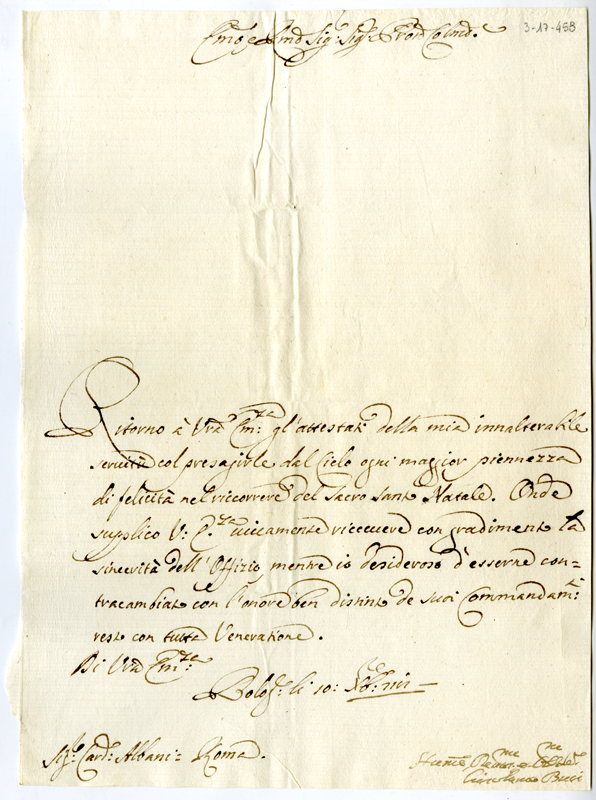 3-17-458
Emo e Rmo Sig: Sigr Pron Colmo.
Ritorno à Vra Em:za gl'attestati della mia innalterabile
servitù col presagirle dal Cielo ogni maggior piennezza
di felicità nel ricorrere del Sacro Santo Natale. Onde
supplico V: E:za vivamente ricevere con gradimento la
sincerità dell'Offizio, mentre io desideroso d'esserne con=
tracambiato con l'onore ben distinto de suoi Commandam:ti
resto con tutta Veneratione.
Di Vra Em:za
Bolog:a li 10:
Sigr Card: Albani = Roma.